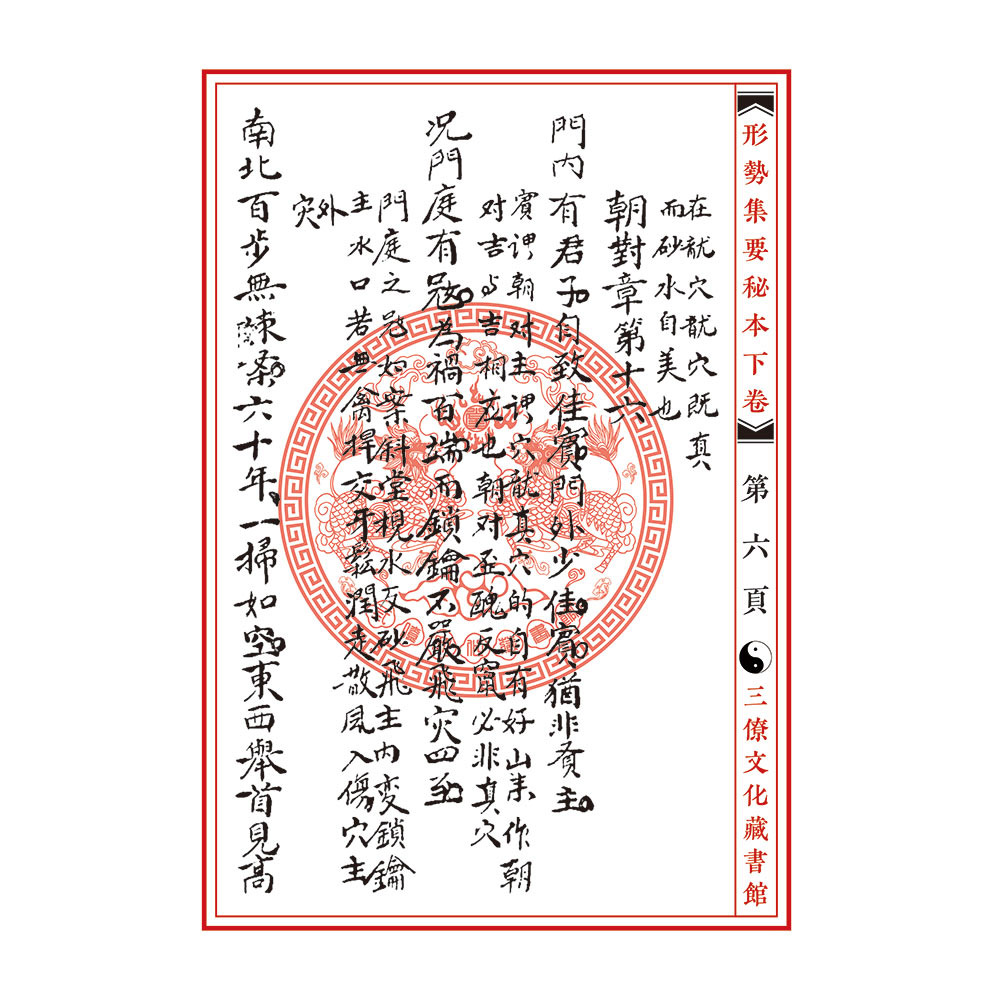 形勢集要秘本下卷
第六頁
三僚文化藏書館
在龍穴龍穴既真
而砂水自美也
朝對章第十六
門内有君子自致佳賓門外少佳賓猶非贤主
賓谓朝对主谓穴龍真穴的自有好山来作朝
对吉与吉相应也朝对歪醜反窜必非真穴
况門庭有冦為禍百端而鎖鑰不嚴飛灾四至
門庭之冦如案斜堂梘水反砂飛主内变鎖鑰
主水口若無禽捍交牙鬆濶走散風入傷穴主
外灾
南北百步無陳桑六十年一掃如空東西舉首見高